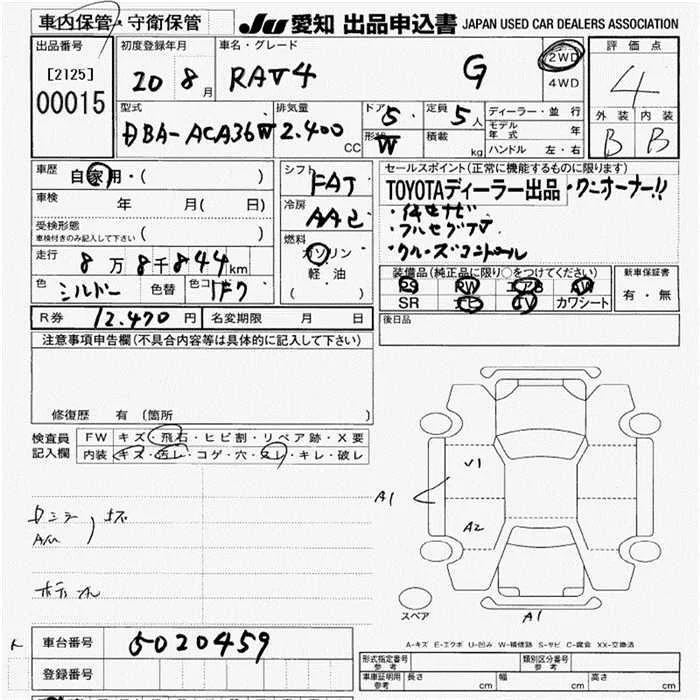 車内保管・守衛保管
JU 愛知 出品申込書 JAPAN USED CAR DEALERS ASSOCIATION
出品番号
[2125]
00015
初度登録年月
20 8月
車名・グレード
RAV4 G
2WD
4WD
評価点
4
外装 内装
B B
型式
DBA-ACA36W
排気量
2.400 CC
ドア
5
形状
W
定員
5人
積載 kg
ディーラー・並行
モデル年式 年
ハンドル 左・右
車歴
自家用・( )
車検
年 月( 日)
受検形態
車検付きのみ記入して下さい
( )
走行
8万8千844km
色
シルバー
色替
色コード
1F7
シフト
FAT
冷房
AAC
燃料
ガソリン
軽油
( )
セールスポイント(正常に機能するものに限ります)
TOYOTAディーラー出品・ワンオーナー!!
・フルセグTV
・クルーズコントロール
装備品(純正品に限り○をつけてください)
PS PW エアB AW
SR ナビ TV カワシート
新車保証書
有・無
R券 12.470円
名変期限 月 日
後日品
注意事項申告欄(不具合内容等は具体的に記入して下さい)
修復歴 有 (箇所 )
検査員記入欄
FW キズ・飛石・ヒビ割・リペア跡・X要
内装 キズ・汚レ・コゲ・穴・スレ・キレ・破レ
A1
U1
A2
スペア
A1
A-キズ E-エクボ U-凹み W-補修跡 S-サビ C-腐食 XX-交換済
車台番号
5020459
登録番号
形式指定番号
参考
類別区分番号
参考
車庫証明用
参考
長さ cm
幅 cm
高さ cm